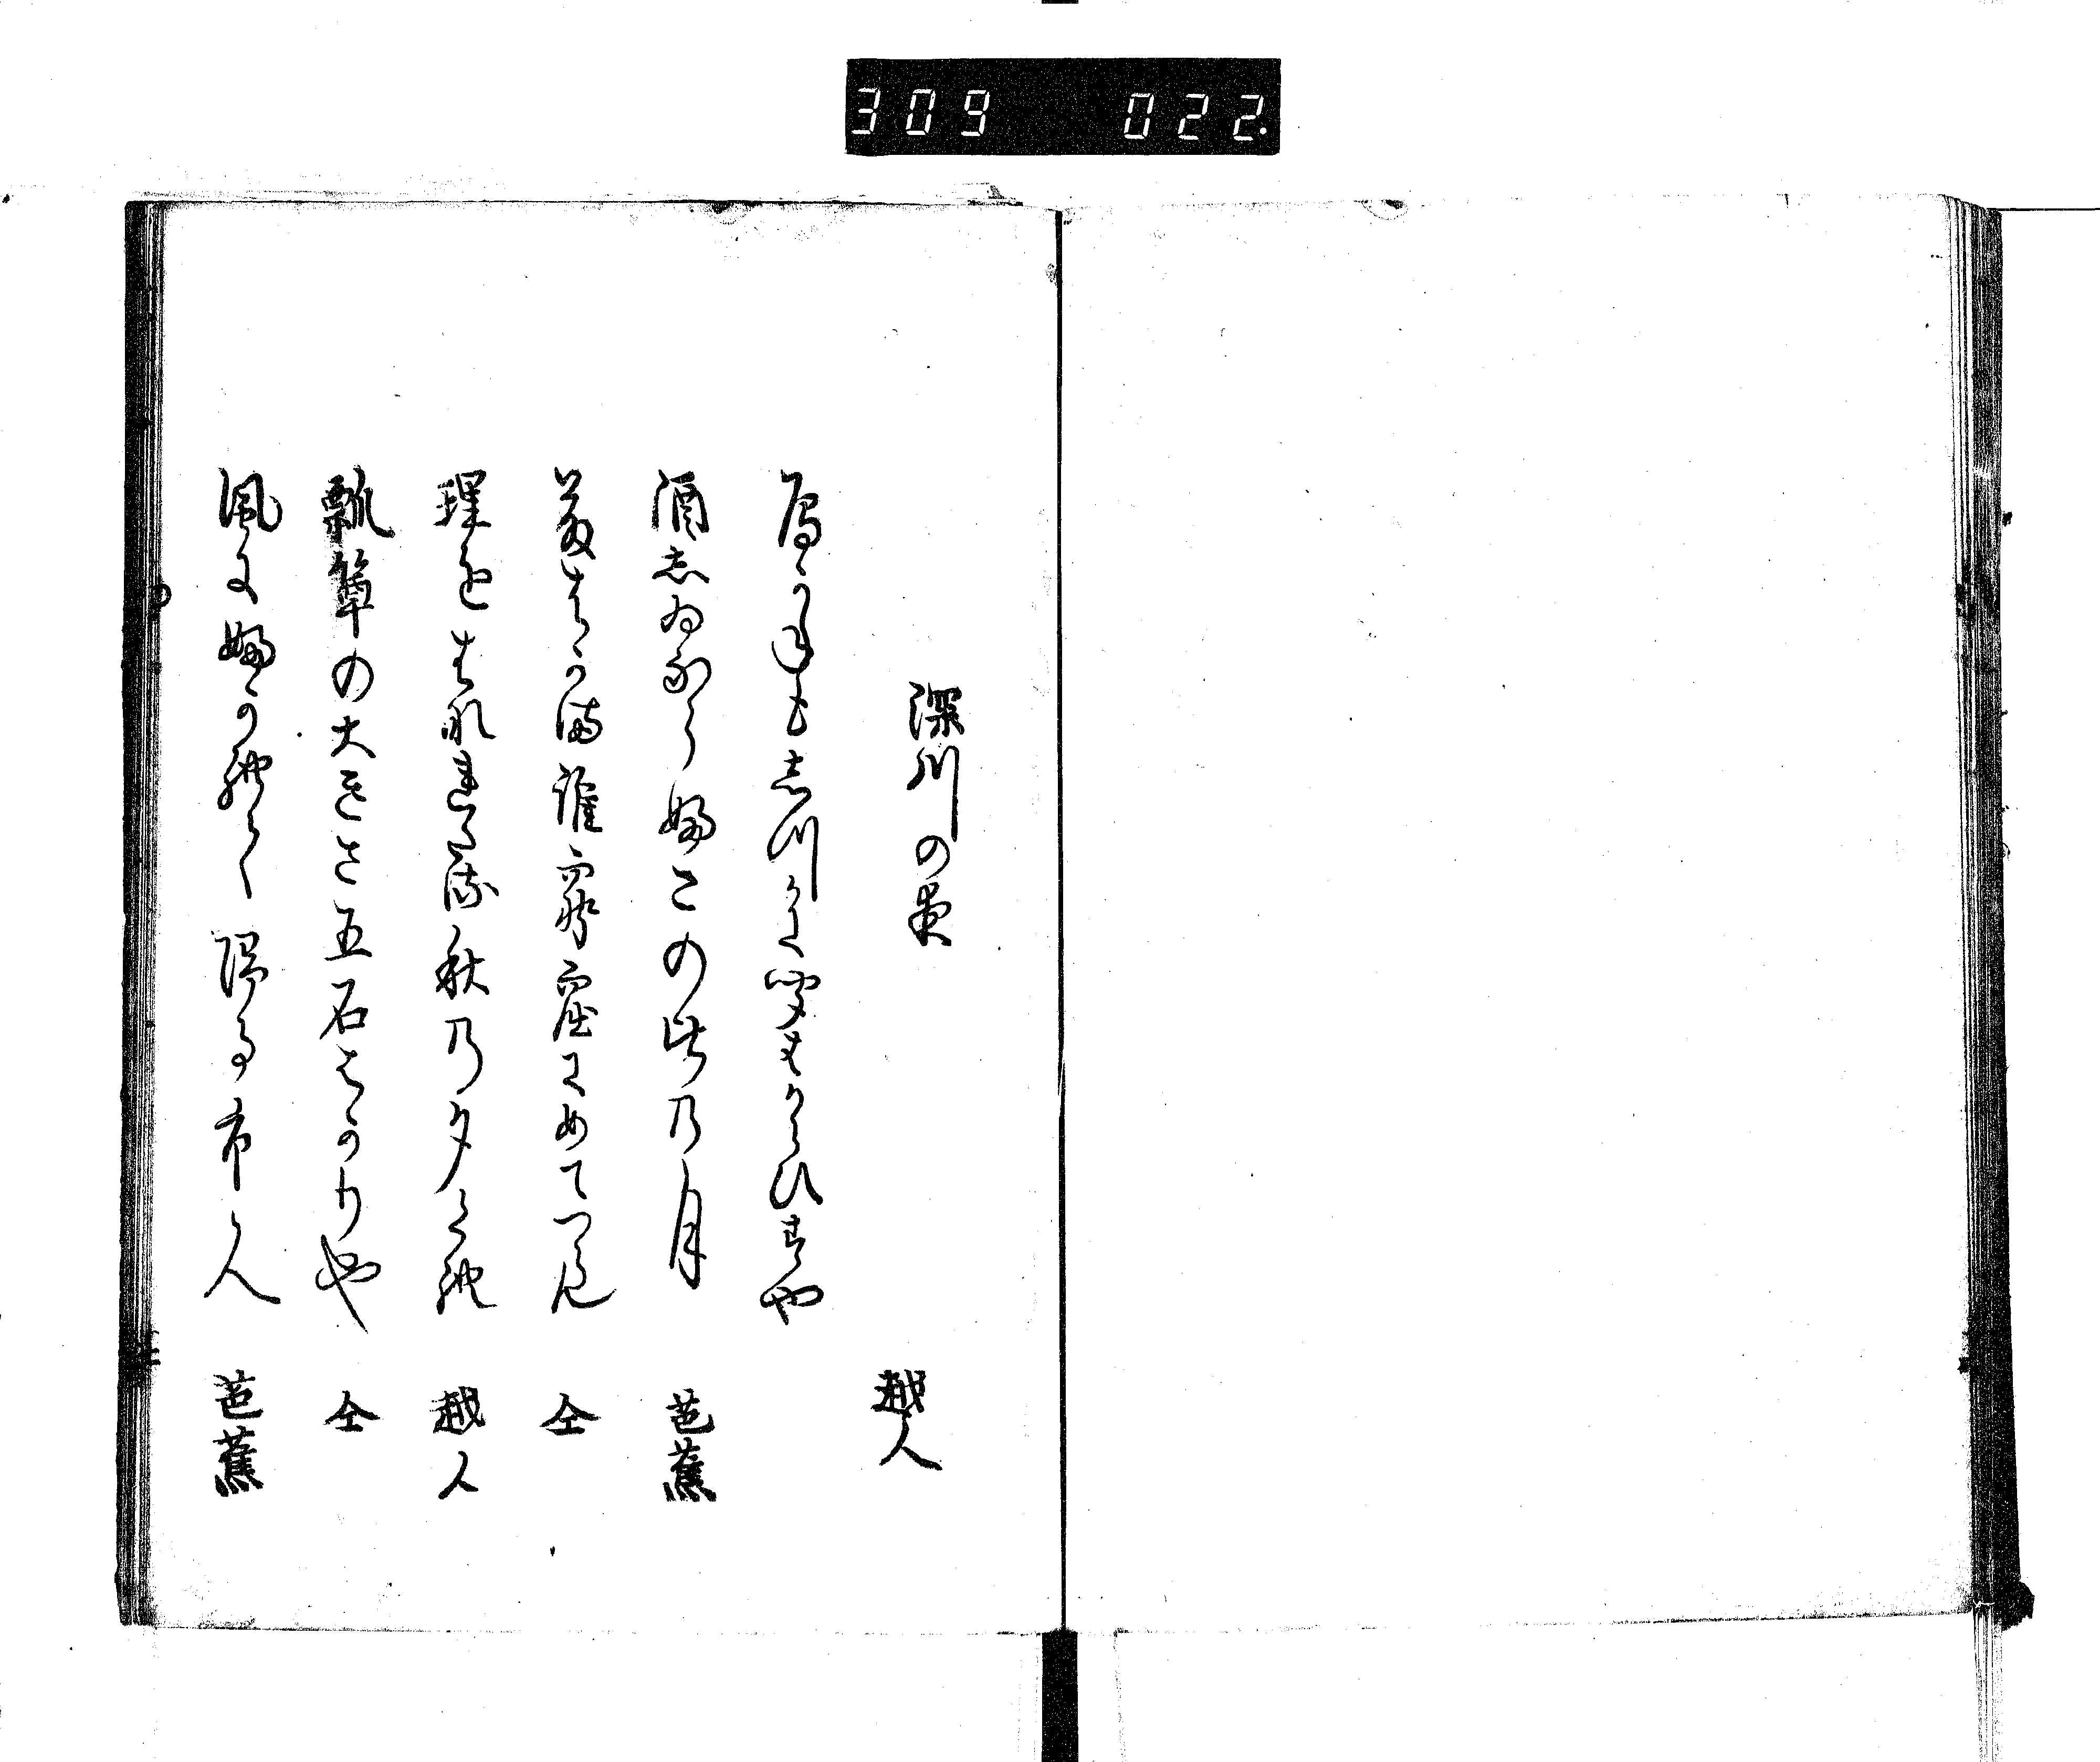 309 022
深川の夜
越人
雁かねもしつかに聞はからひすや
酒しゐならふこの比の月 芭蕉
藤はかま誰窮屈にめてつらん 仝
理をはなれたる秋の夕くれ 越人
瓢箪の大きさ五石はかりや 仝
風にふかれて帰る市人 芭蕉